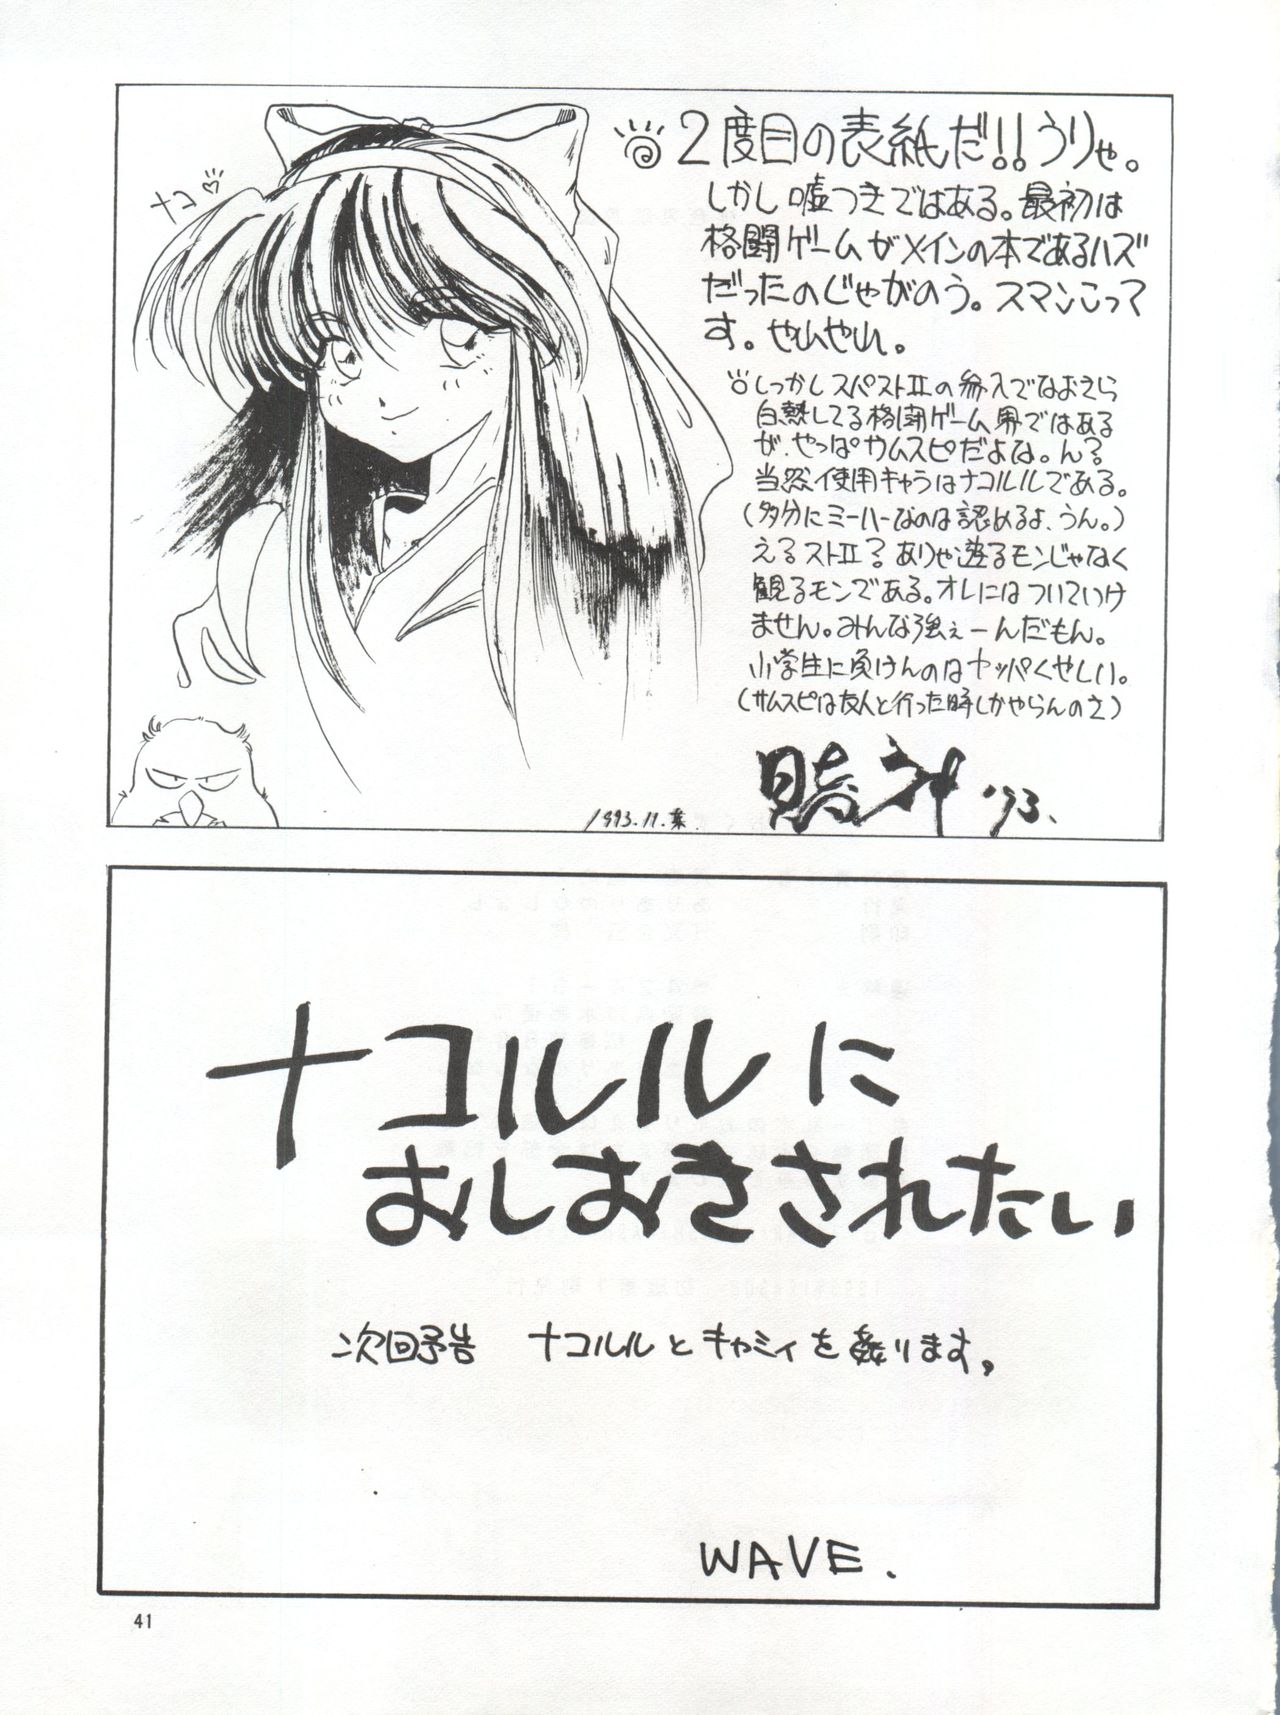 ナコ♡
2度目の表紙だ!!うりゃ。
しかし嘘つきではある。最初は
格闘ゲームがメインの本であるハズ
だったのじゃがのう。スマンこって
す。やれやれ。
しっかしスパストⅡの参入でなおさら
白熱してる格闘ゲーム界ではある
が、やっぱサムスピだよな。ん?
当然、使用キャラはナコルルである。
(多分にミーハーなのは認めるよ、うん。)
えるストⅡ?ありゃ遊るモンじゃなく
観るモンである。オレにはついていけ
ません。みんな強ぇーんだもん。
小学生に負けんのはヤッパくやしい。
(サムスピは友人と行った時しかやらんのさ)
'93.
1993.11.
ナコルルに
おしおきされたい
次回予告 ナコルルとキャミィを姦ります。
WAVE.
41